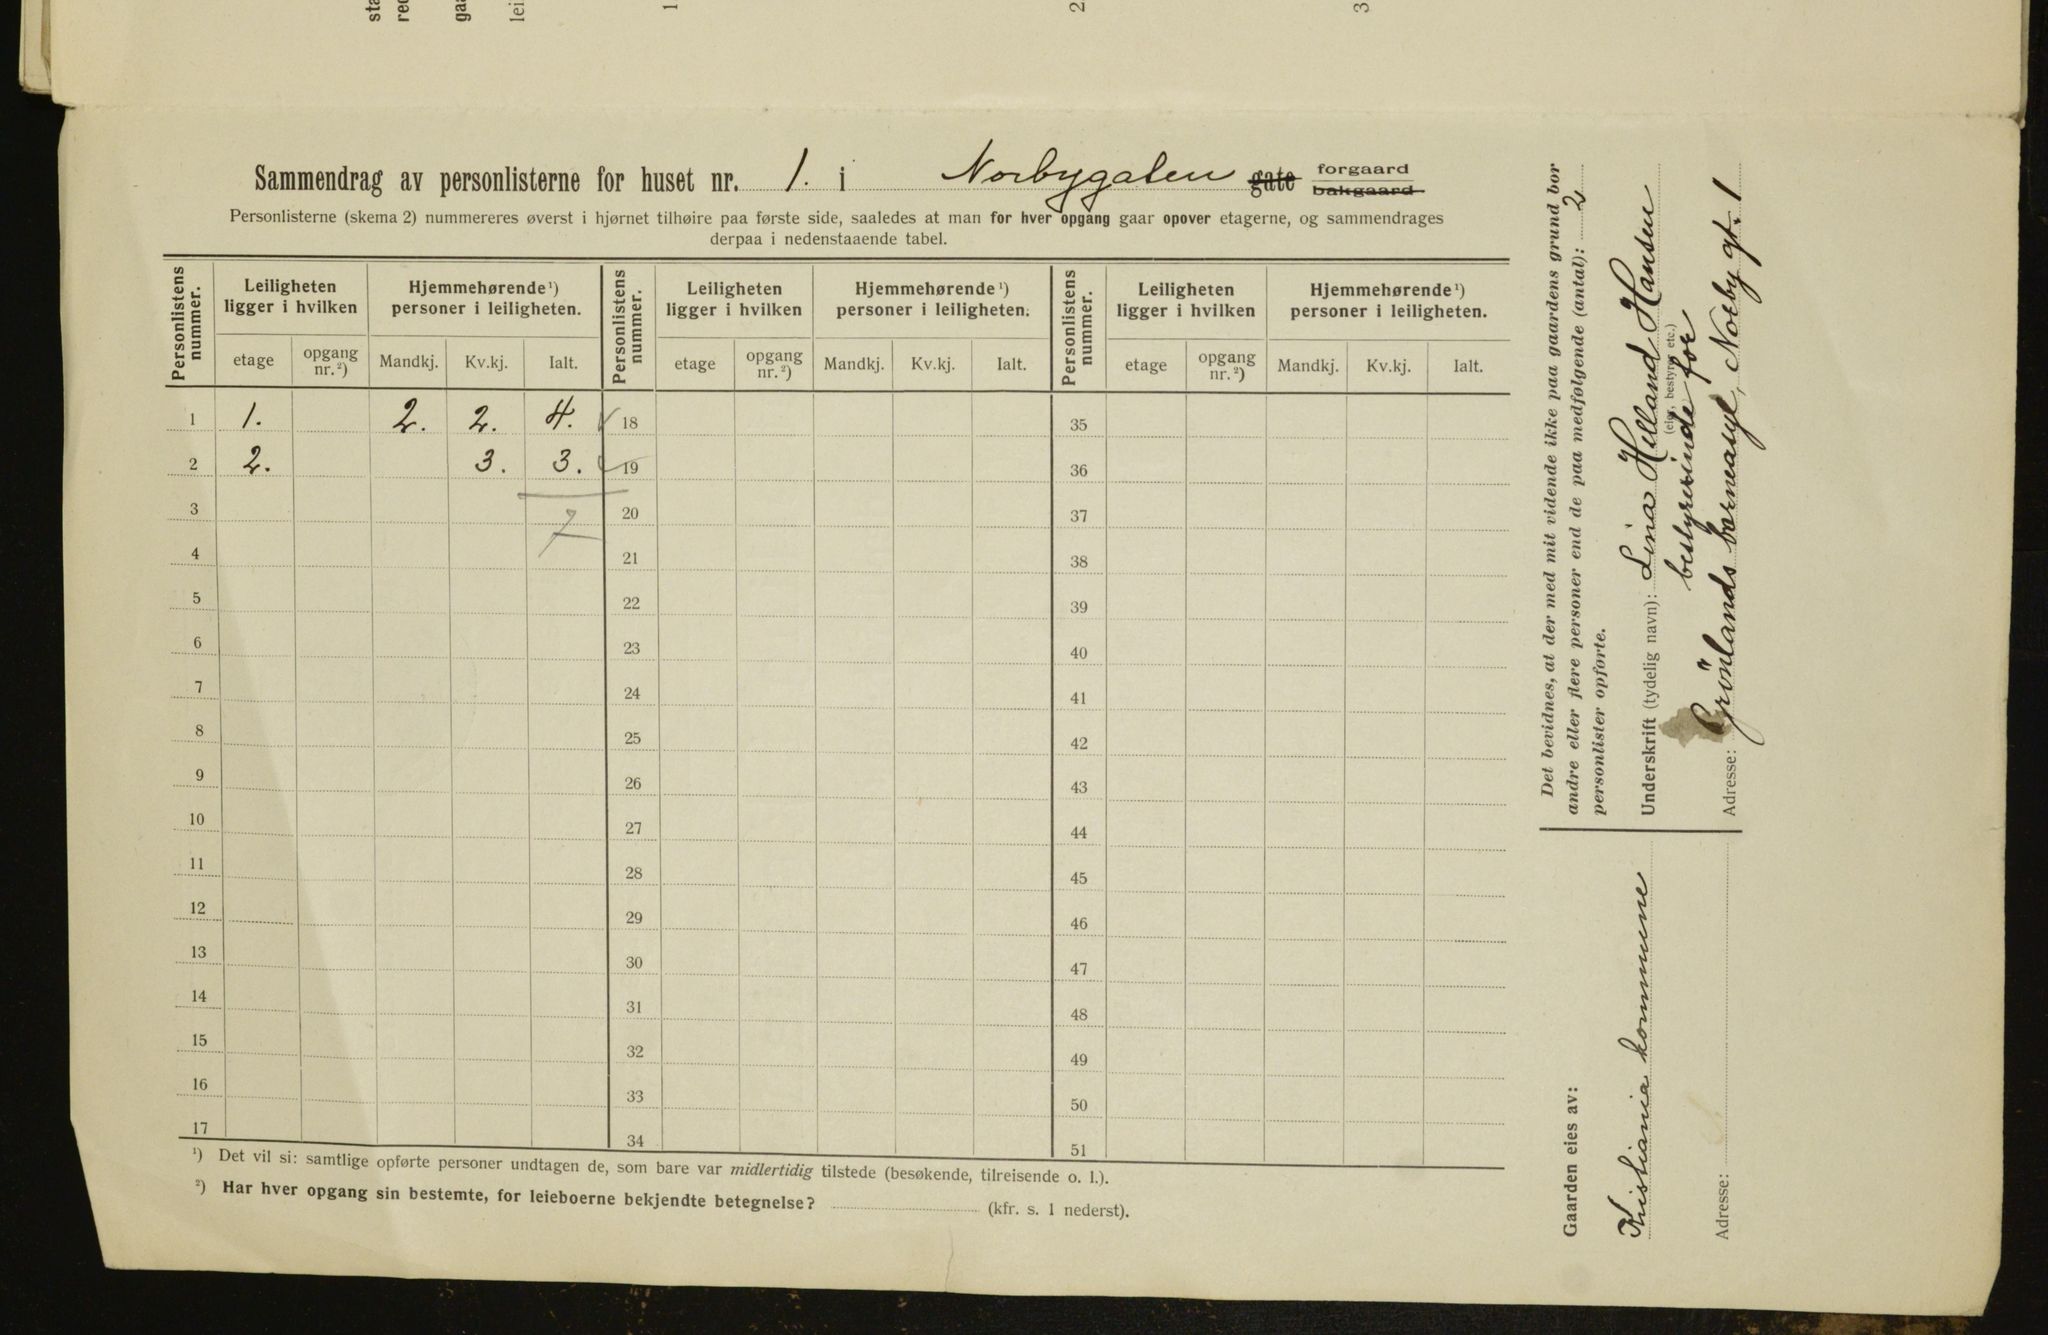 sta
red
gaa
lei
1
2
3
Sammendrag av personlisterne for huset nr. 1. i Norbygaten gate forgaard
bakgaard
Personlisterne (skema 2) nummereres øverst i hjørnet tilhøire paa første side, saaledes at man for hver opgang gaar opover etagerne, og sammendrages
derpaa i nedenstaaende tabel.
Personlistens nummer. Leiligheten ligger i hvilken Hjemmehørende¹) personer i leiligheten. Personlistens nummer. Leiligheten ligger i hvilken Hjemmehørende¹) personer i leiligheten. Personlistens nummer. Leiligheten ligger i hvilken Hjemmehørende¹) personer i leiligheten.
etage opgang nr.²) Mandkj. Kv.kj. Ialt. etage opgang nr.²) Mandkj. Kv.kj. Ialt. etage opgang nr.²) Mandkj. Kv.kj. Ialt.
1 1. 2. 2. 4. 18 35
2 2. 3. 3. 19 36
3 7 20 37
4 21 38
5 22 39
6 23 40
7 24 41
8 25 42
9 26 43
10 27 44
11 28 45
12 29 46
13 30 47
14 31 48
15 32 49
16 33 50
17 34 51
¹) Det vil si: samtlige opførte personer undtagen de, som bare var midlertidig tilstede (besøkende, tilreisende o. l.).
²) Har hver opgang sin bestemte, for leieboerne bekjendte betegnelse? (kfr. s. 1 nederst).
Det bevidnes, at der med mit vidende ikke paa gaardens grund bor
andre eller flere personer end de paa medfølgende (antal): 2
personlister opførte.
Underskrift (tydelig navn): Lina Helland Hansen
(eier, bestyrer etc.)
bestyrerinde for
Adresse: Grönlands barneasyl, Norby gt. 1
Gaarden eies av:
Kristiania kommune
Adresse: